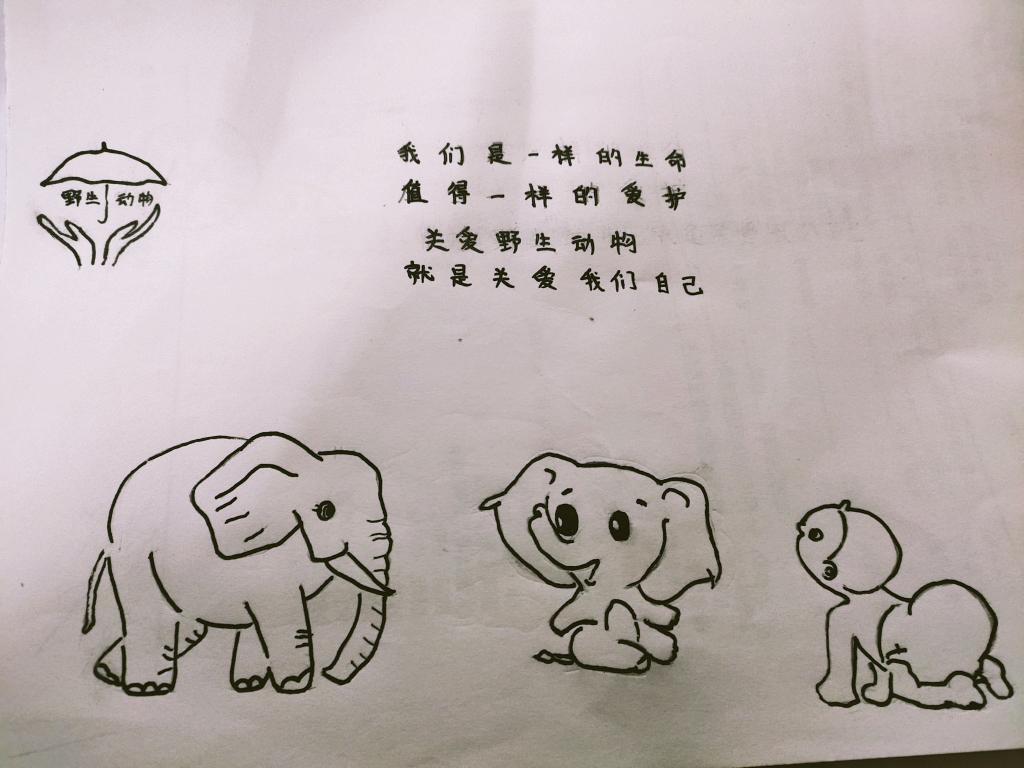 野生动物
我们是一样的生命
值得一样的爱护
关爱野生动物
就是关爱我们自己